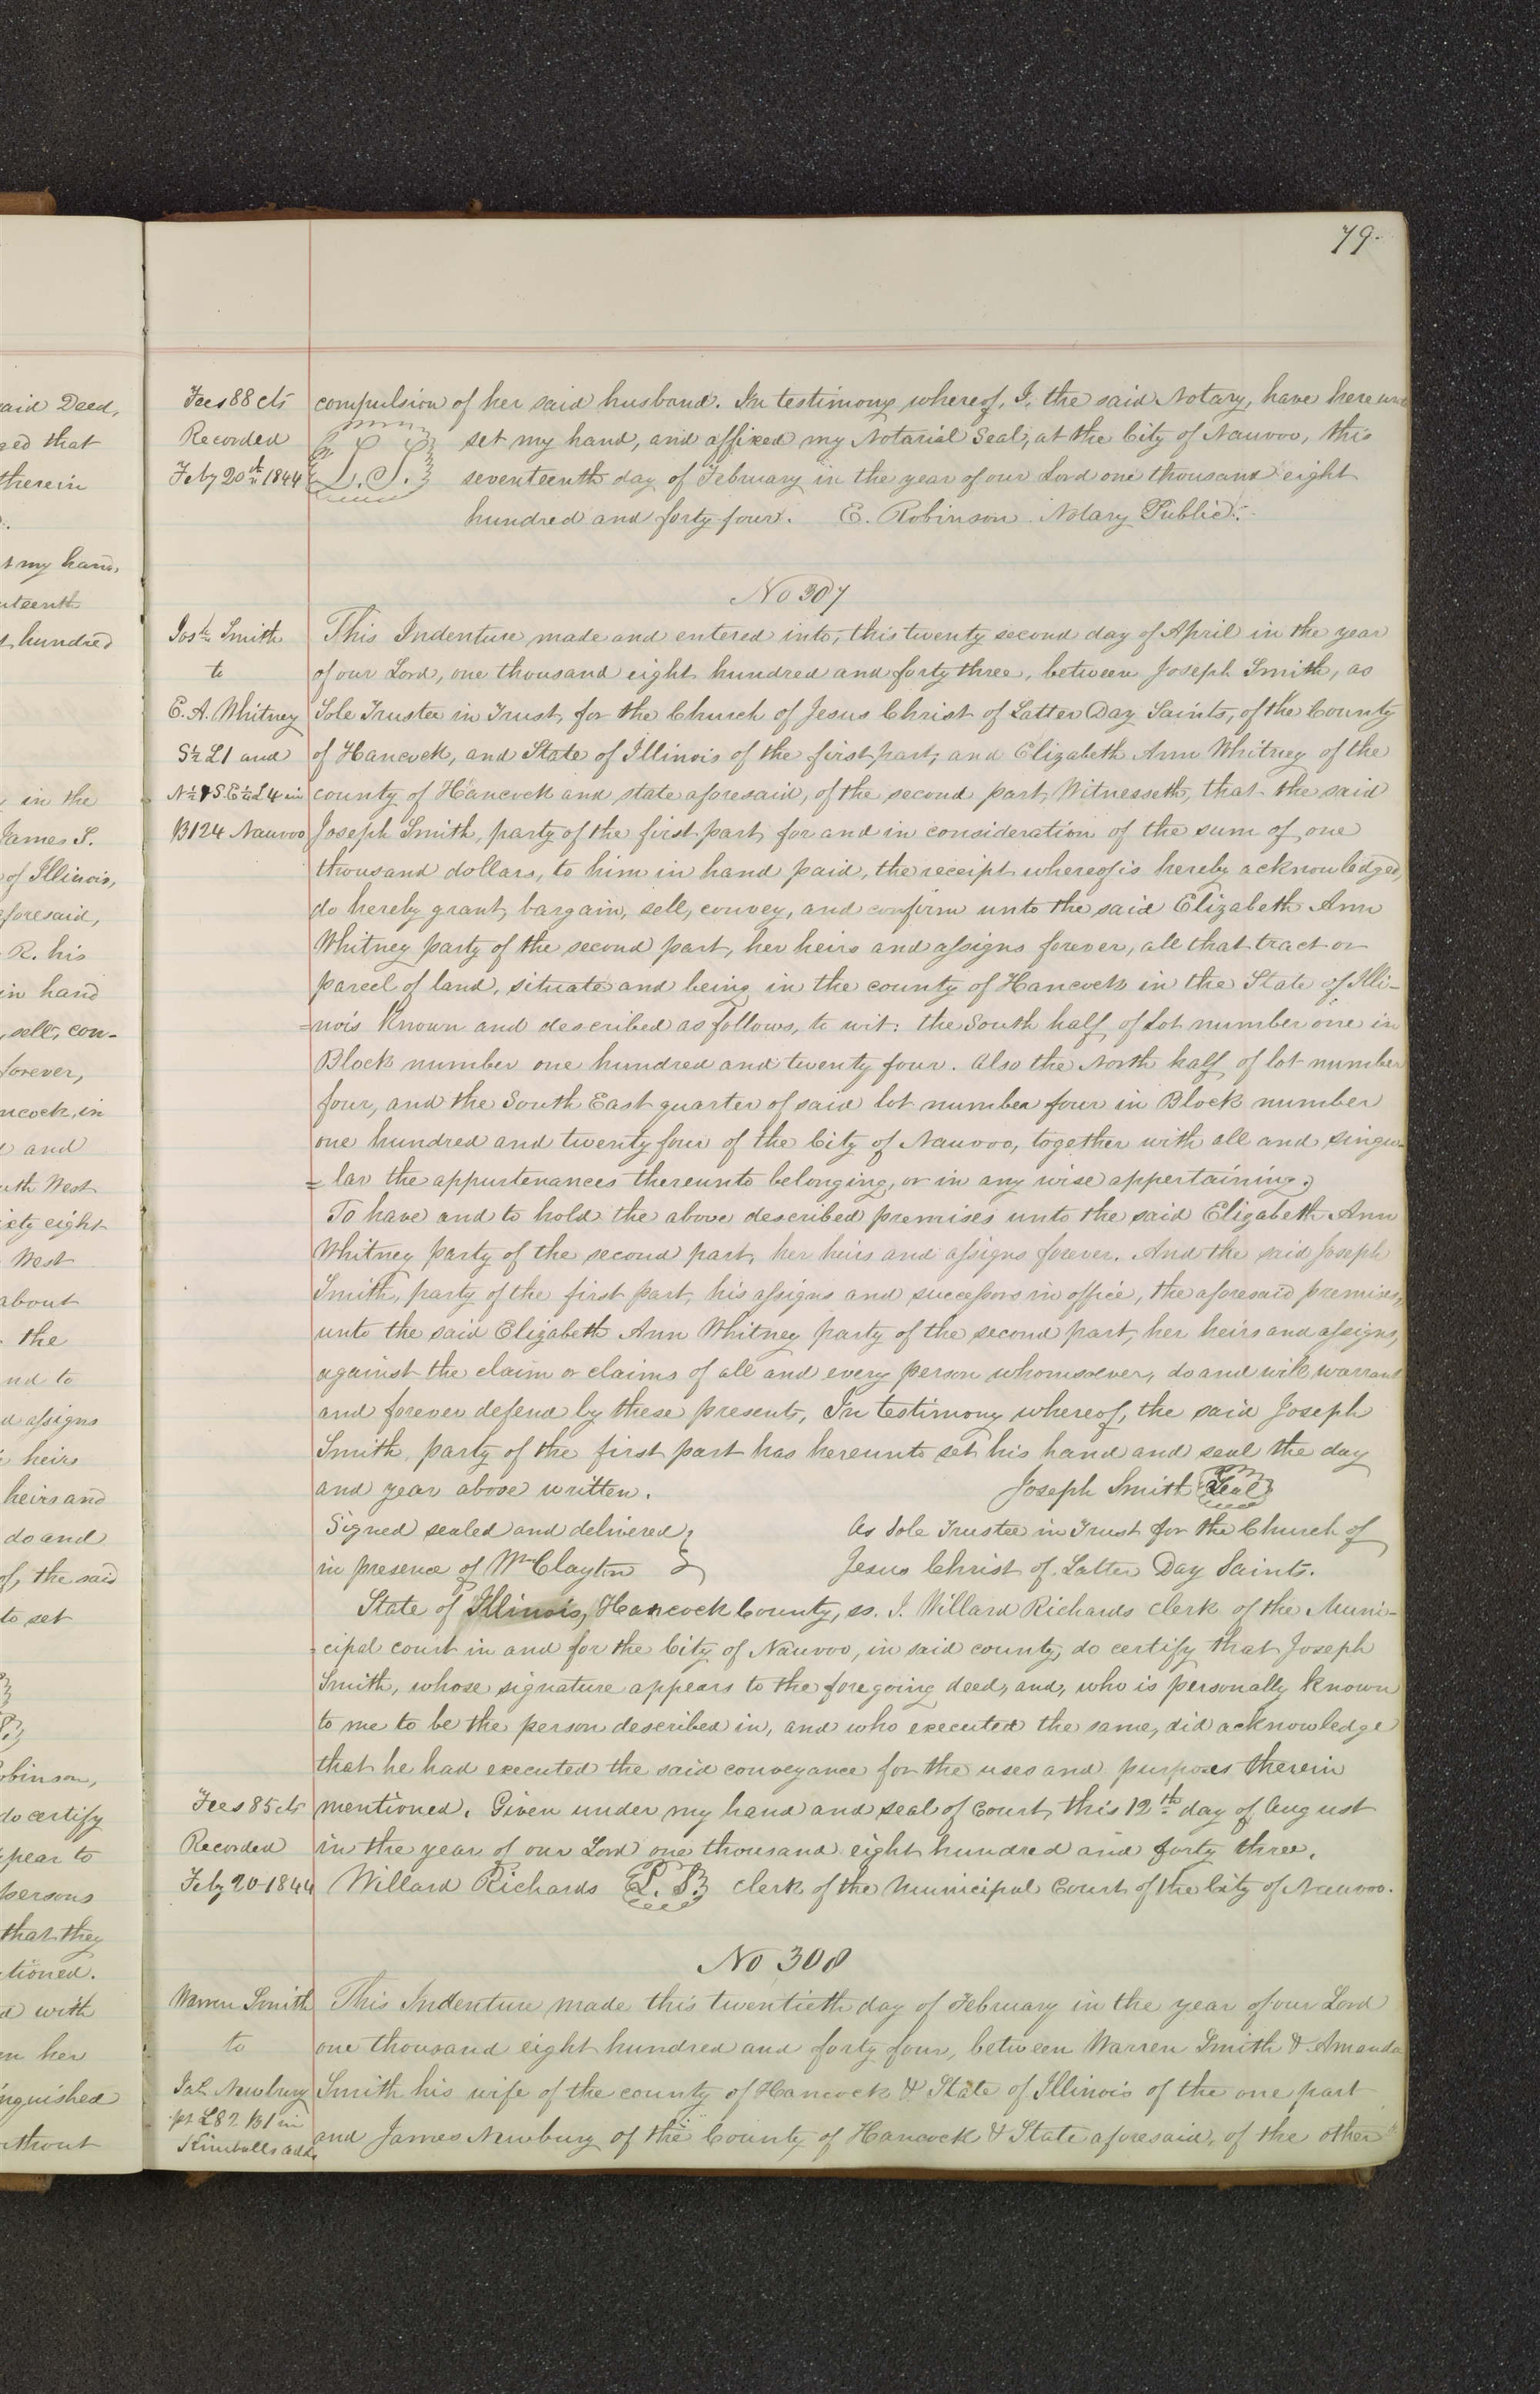 79.
aid Deed,
ged that
therein
t my hand,
nteenth
t hundred
in the
James S.
of Illinois,
foresaid,
R. his
in hand
, sell, con-
forever,
ncock, in
and
uth West
iety eight
West
about
the
nd to
d assigns
heirs
heirs and
do and
of, the said
to set
obinson,
do certify
pear to
persons
that they
tioned.
d with
en her
inguished
ithout
Fees 88 cts
Recorded
Feby 20th 1844
compulsion of her said husband. In testimony whereof, I, the said Notary, have hereun
L.S. set my hand, and affixed my Notarial Seal, at the City of Nauvoo, this
seventeenth day of February in the year of our Lord one thousand eight
hundred and forty four. E. Robinson Notary Public.
No 307
Josh Smith
to
E. A. Whitney
S½ L1 and
N½ & S.E¼ L4 in
B124 Nauvoo
This Indenture made and entered into, this twenty second day of April in the year
of our Lord, one thousand eight hundred and forty three, between Joseph Smith, as
Sole Trustee in Trust, for the Church of Jesus Christ of Latter Day Saints, of the County
of Hancock, and State of Illinois of the first part, and Elizabeth Ann Whitney of the
county of Hancock and state aforesaid, of the second part, Witnesseth, that the said
Joseph Smith, party of the first part, for and in consideration of the sum of one
thousand dollars, to him in hand paid, the receipt whereof is hereby acknowledged,
do hereby grant, bargain, sell, convey, and confirm unto the said Elizabeth Ann
Whitney party of the second part, her heirs and assigns forever, all that tract or
parcel of land, situate and being in the county of Hancock in the State of Illi-
=nois Known and described as follows, to wit: the South half of Lot number one in
Block number one hundred and twenty four. Also the North half of lot number
four, and the South East quarter of said lot number four in Block number
one hundred and twenty four of the City of Nauvoo, together with all and singu-
=lar the appurtenances thereunto belonging, or in any wise appertaining,
To have and to hold the above described premises unto the said Elizabeth Ann
Whitney party of the second part, her heirs and assigns forever. And the said Joseph
Smith, party of the first part, his assigns and successors in office, the aforesaid premises,
unto the said Elizabeth Ann Whitney party of the second part, her heirs and assigns,
against the claim or claims of all and every person whomsoever, do and will warrant
and forever defend by these presents, In testimony whereof, the said Joseph
Smith, party of the first part has hereunto set his hand and seal the day
and year above written. Joseph Smith Seal
Signed sealed and delivered As Sole Trustee in Trust for the Church of
in presence of Wm Clayton Jesus Christ of Latter Day Saints.
State of Illinois, Hancock County, ss. I. Willard Richards clerk of the Muni-
-cipal court in and for the City of Nauvoo, in said county, do certify that Joseph
Smith, whose signature appears to the foregoing deed, and, who is personally Known
to me to be the person described in, and who executed the same, did acknowledge
that he had executed the said conveyance for the uses and purposes therein
mentioned. Given under my hand and seal of Court, this 12th day of August
in the year of our Lord one thousand eight hundred and forty three.
Willard Richards L.S. clerk of the Municipal Court of the City of Nauvoo.
Fees 85 cts
Recorded
Feby 20 1844
No 308
Warren Smith
to
Jas. Newbury
pt L82 B1 in
Kimballs add.
This Indenture made this twentieth day of February in the year of our Lord
one thousand eight hundred and forty four, between Warren Smith & Amanda
Smith his wife of the county of Hancock & State of Illinois of the one part
and James Newbury of the County of Hancock & State aforesaid, of the other